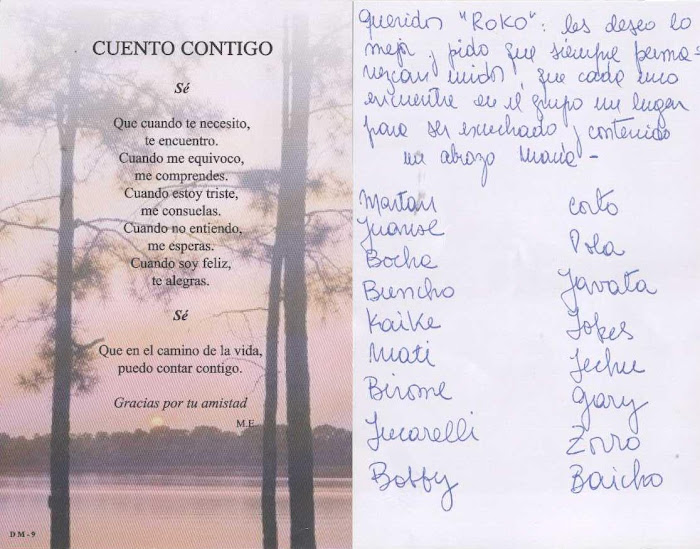 CUENTO CONTIGO
Sé
Que cuando te necesito,
te encuentro.
Cuando me equivoco,
me comprendes.
Cuando estoy triste,
me consuelas.
Cuando no entiendo,
me esperas.
Cuando soy feliz,
te alegras.
Sé
Que en el camino de la vida,
puedo contar contigo.
Gracias por tu amistad
M.E.
DM-9
Queridos "Roko": les deseo lo
mejor y pido que siempre perma-
nezcan unidos, que cada uno
encuentre en el grupo un lugar
para ser escuchado y contenido
un abrazo María -
Martan
Juanse
Bocha
Buncho
Kaike
Mati
Birome
Bobby
corto
Pola
Javata
Jokes
Jechu
Gary
Zorro
Baicho